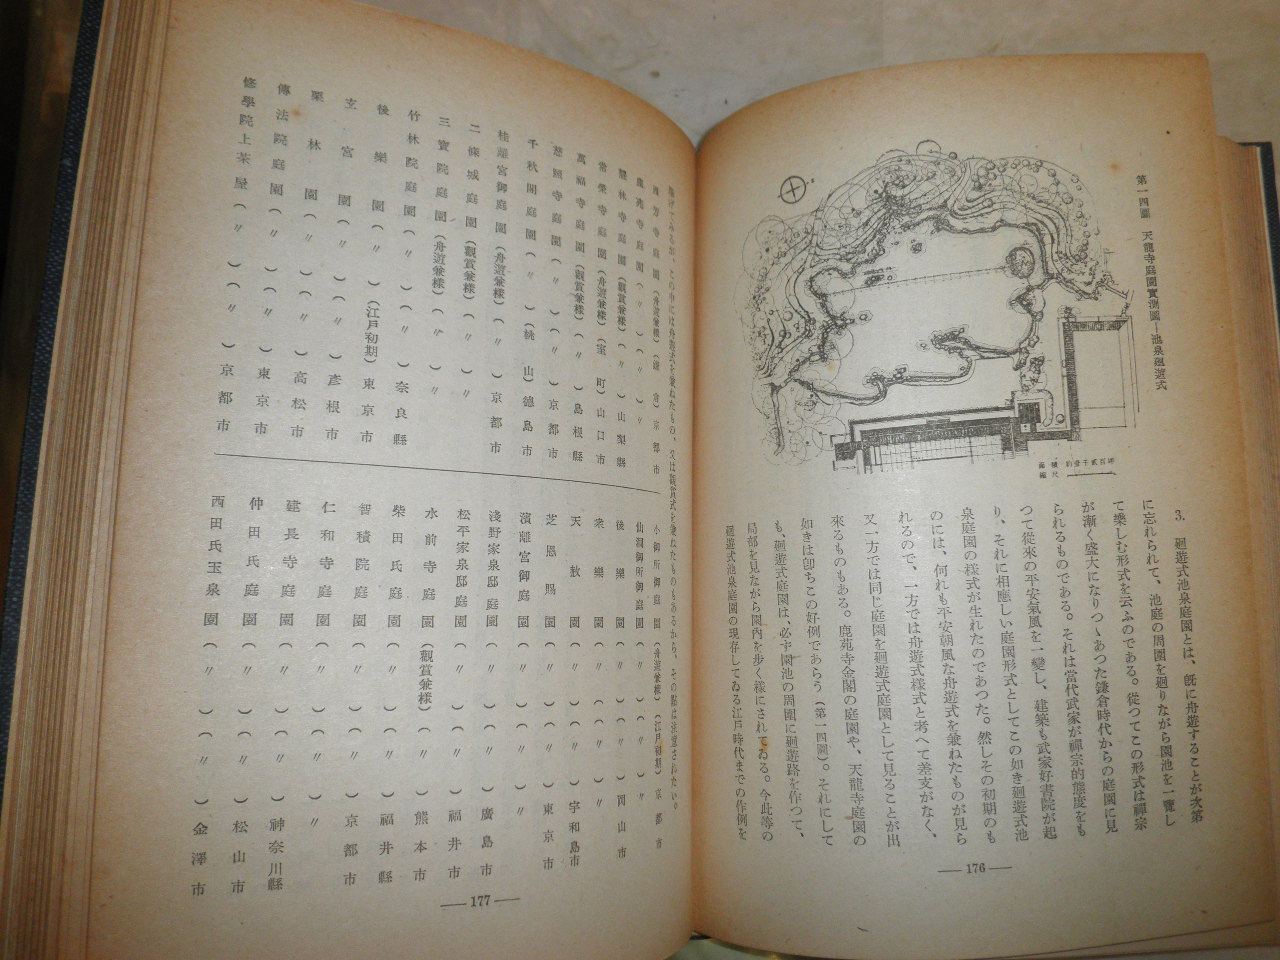 第一四圖　天龍寺庭園實測圖—池泉廻遊式
面積　約壹千貳百坪
縮尺
3.　廻遊式池泉庭園とは、旣に舟遊することが次第
に忘れられて、池庭の周圍を廻りながら園池を一覽し
て樂しむ形式を云ふのである。從つてこの形式は禪宗
が漸く盛大になりつゝあつた鎌倉時代からの庭園に見
られるものである。それは當代武家が禪宗的態度をも
つて從來の平安氣風を一變し、建築も武家好書院が起
り、それに相應しい庭園形式としてこの如き廻遊式池
泉庭園の樣式が生れたのであつた。然しその初期のも
のには、何れも平安朝風な舟遊式を兼ねたものが見ら
れるので、一方では舟遊式樣式と考へて差支がなく、
又一方では同じ庭園を廻遊式庭園として見ることが出
來るものもある。鹿苑寺金閣の庭園や、天龍寺庭園の
如きは卽ちこの好例であらう（第一四圖）。それにして
も、廻遊式庭園は、必ず園池の周圍に廻遊路を作つて、
局部を見ながら園內を步く樣にされてゐる。今此等の
廻遊式池泉庭園の現存してゐる江戶時代までの作例を
— 176 —
擧げてみるが、この中には舟遊式を兼ねたもの、又は觀賞式を兼ねたものもあるから、その點は注意されたい。
西芳寺庭園（舟遊兼樣）（鎌倉）京都市
鹿苑寺庭園（〃）（〃）〃
慧林寺庭園（觀賞兼樣）（〃）山梨縣
常榮寺庭園（舟遊兼樣）（室町）山口市
萬福寺庭園（觀賞兼樣）（〃）島根縣
慈照寺庭園（〃）（〃）京都市
千秋閣庭園（〃）（桃山）德島市
桂離宮御庭園（舟遊兼樣）（〃）京都市
二條城庭園（觀賞兼樣）（〃）〃
三寶院庭園（舟遊兼樣）（〃）〃
竹林院庭園（〃）（〃）奈良縣
後樂園（〃）（江戶初期）東京市
玄宮園（〃）（〃）彥根市
栗林園（〃）（〃）高松市
傳法院庭園（〃）（〃）東京市
修學院上茶屋（〃）（〃）京都市
小御所御庭園（舟遊兼樣）（江戶初期）京都市
仙洞御所御庭園（〃）（〃）〃
後樂園（〃）（〃）岡山市
衆樂園（〃）（〃）〃
天赦園（〃）（〃）宇和島市
芝恩賜園（〃）（〃）東京市
濱離宮御庭園（〃）（〃）〃
淺野家泉邸庭園（〃）（〃）廣島市
松平家泉邸庭園（〃）（〃）福井市
水前寺庭園（觀賞兼樣）（〃）熊本市
柴田氏庭園（〃）（〃）福井縣
智積院庭園（〃）（〃）京都市
仁和寺庭園（〃）（〃）〃
建長寺庭園（〃）（〃）神奈川縣
仲田氏庭園（〃）（〃）松山市
西田氏玉泉園（〃）（〃）金澤市
— 177 —